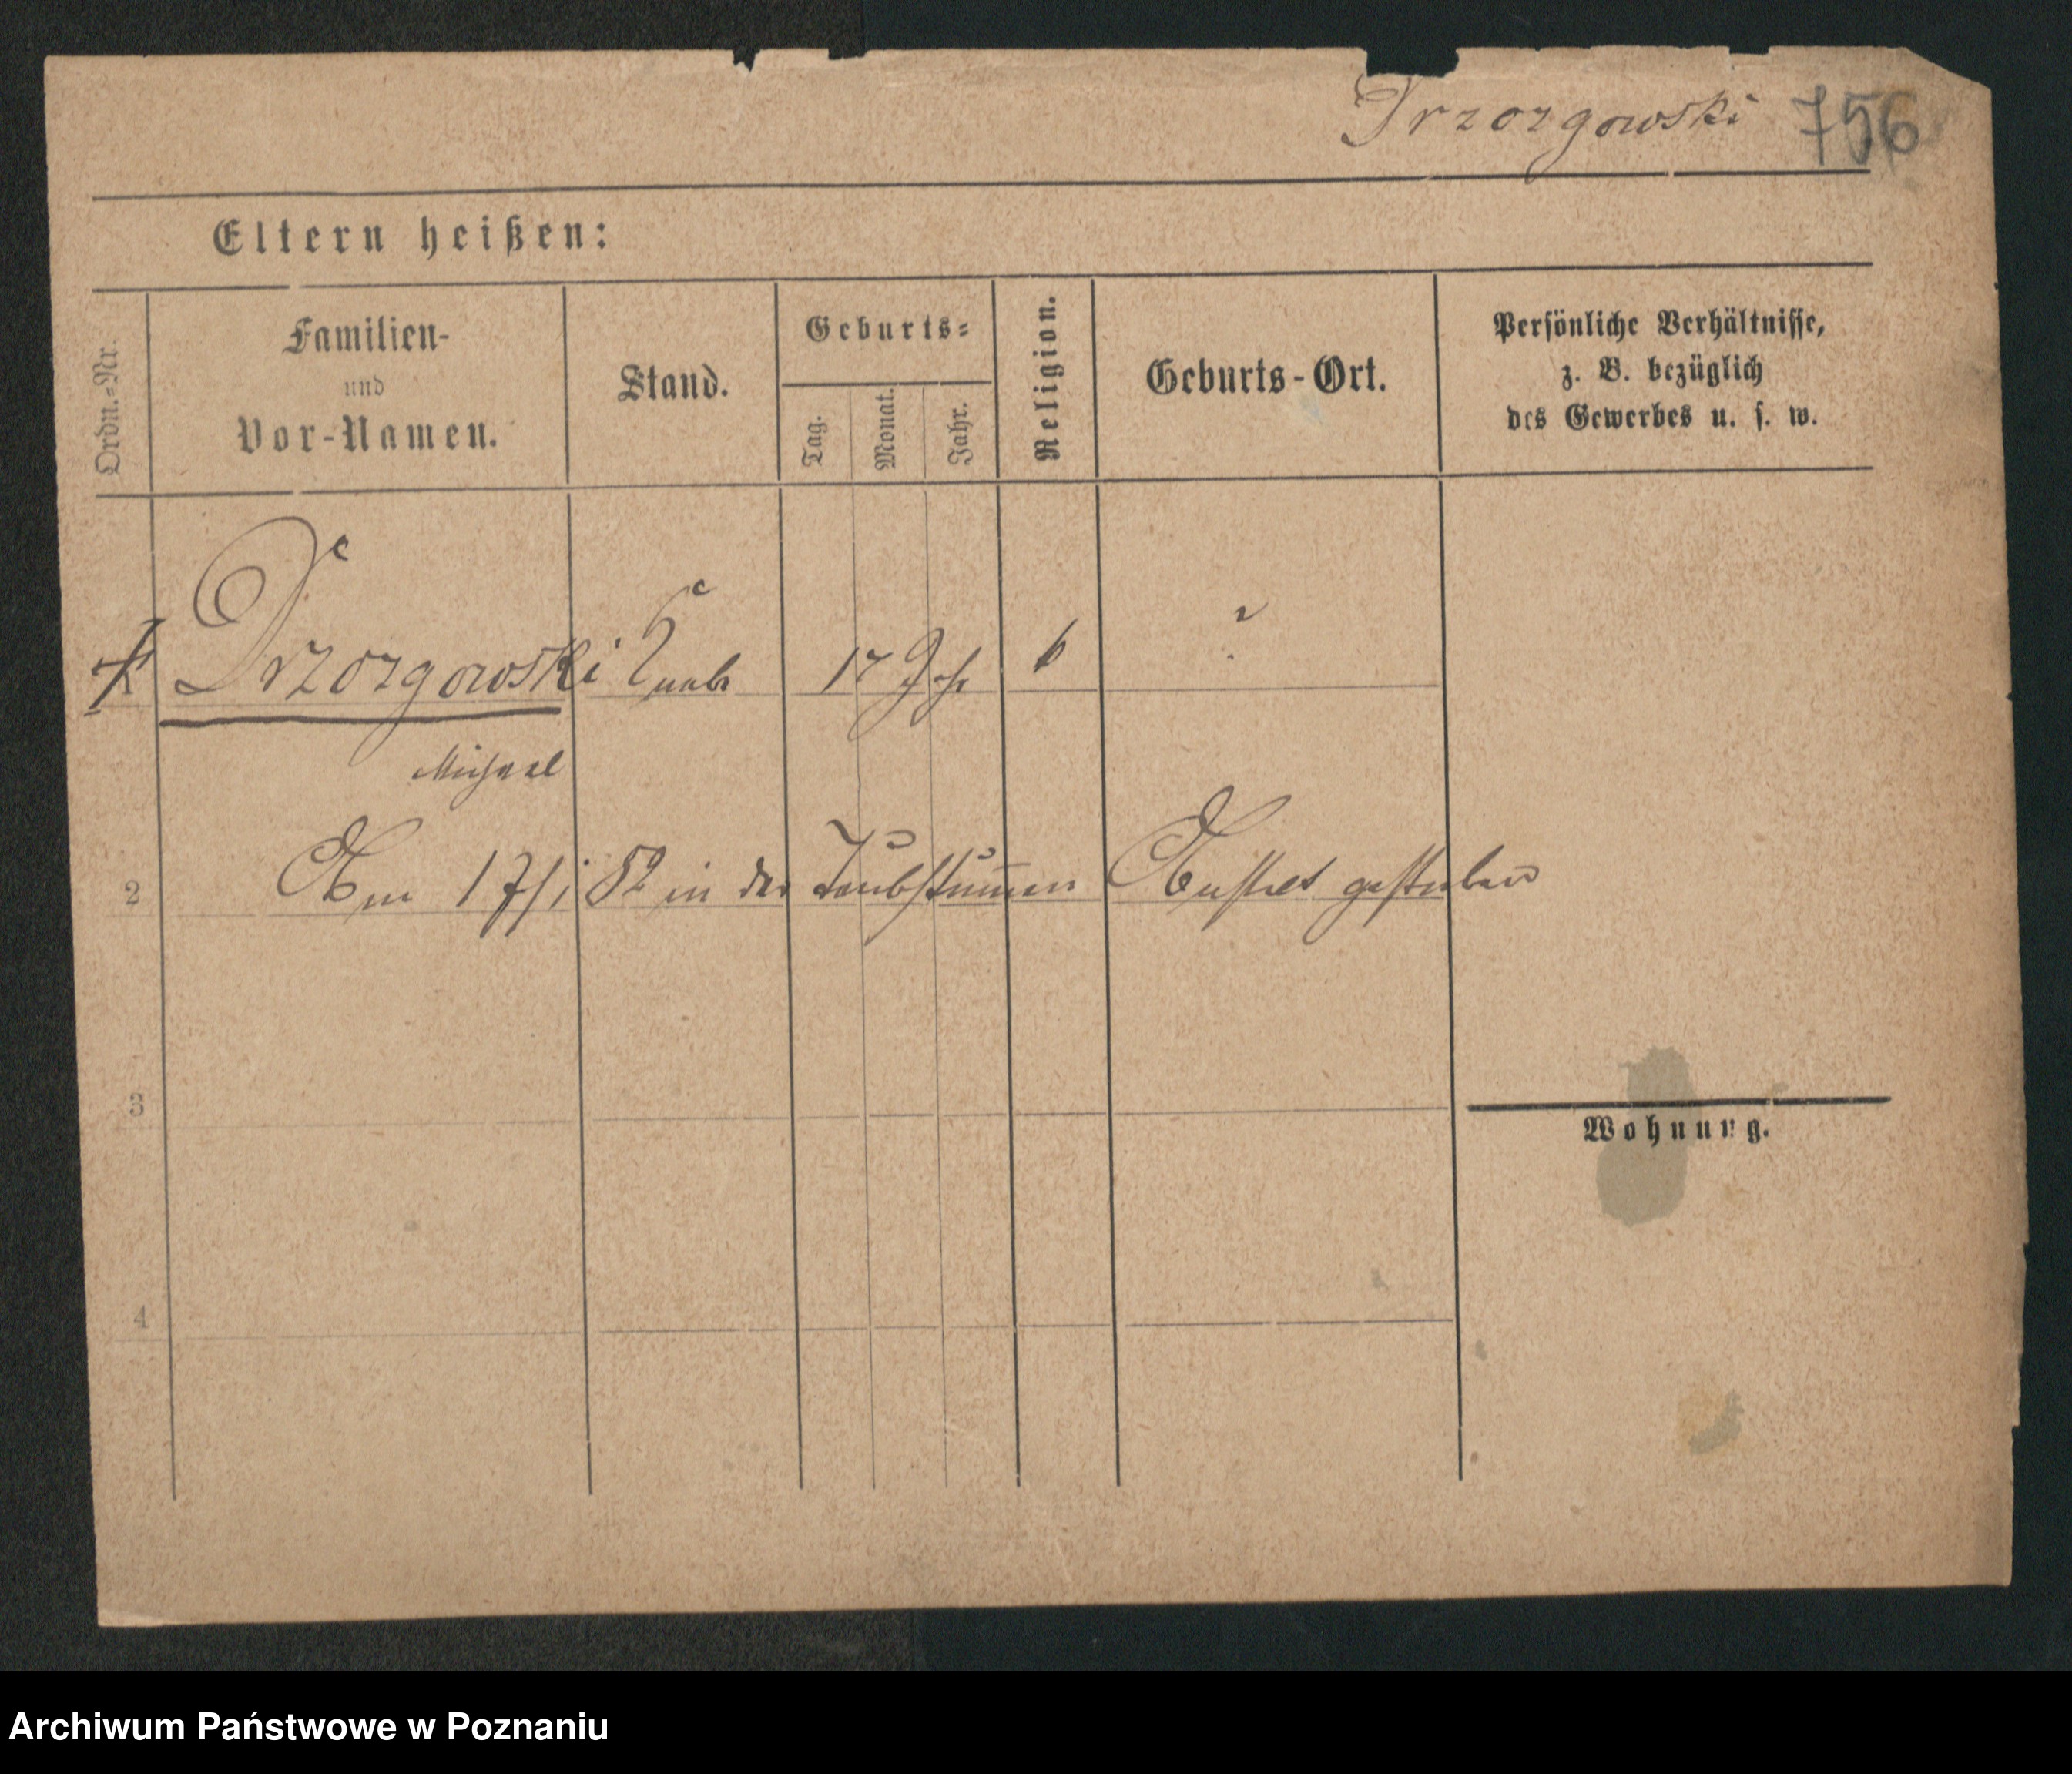 Drzozgowski 756
Eltern heißen:
Ordn.-Nr.
Familien-
und
Vor-Namen.
Stand.
Geburts-
Tag.
Monat.
Jahr.
Religion.
Geburts-Ort.
Persönliche Verhältnisse,
z. B. bezüglich
des Gewerbes u. s. w.
1 Drzozgowski Knabe 17 Jahr ?
Michael
2 Am 17/1 82 in der Taubstummen Anstalt gestorben
3
Wohnung.
4
Archiwum Państwowe w Poznaniu